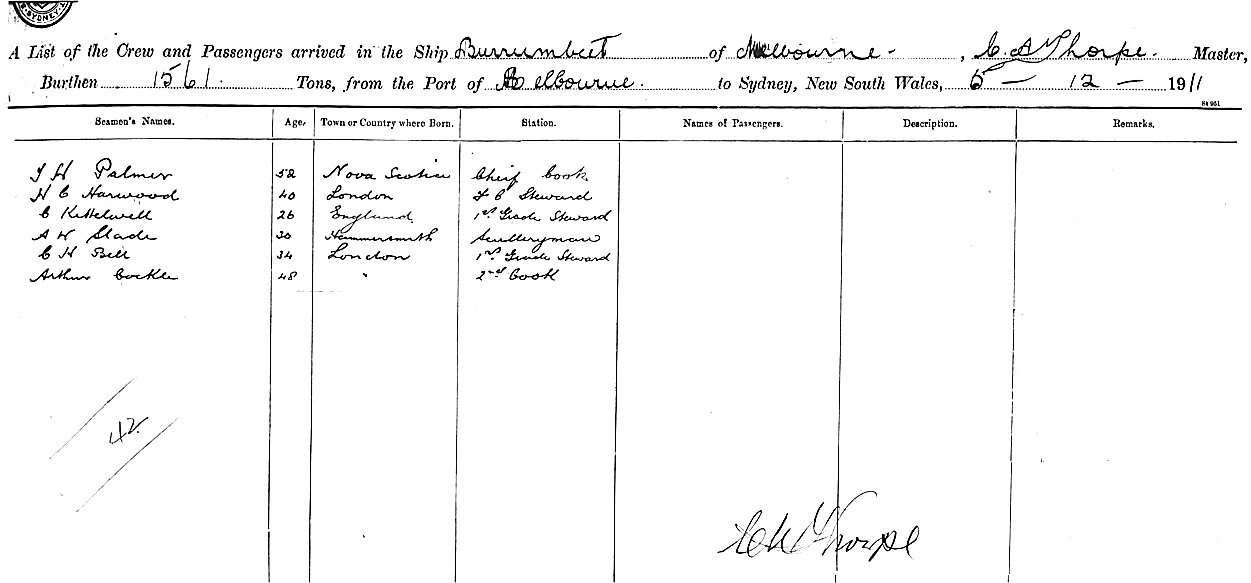 SYDNEY
A List of the Crew and Passengers arrived in the Ship Burrumbeet of Melbourne, C. A Thorpe. Master,
Burthen 1561 Tons, from the Port of Melbourne. to Sydney, New South Wales, 5 — 12 — 1911
St 951
Seamen's Names. Age. Town or Country where Born. Station. Names of Passengers. Description. Remarks.
J H Palmer 52 Nova Scotia Cheif Cook
H C Harwood 40 London F C Steward
C Kettelwell 26 England 1st Grade Steward
A W Slade 30 Hammersmith Sculleryman
C H Bell 34 London 1st Grade Steward
Arthur Cockle 48 " 2nd Cook
42
C A Thorpe